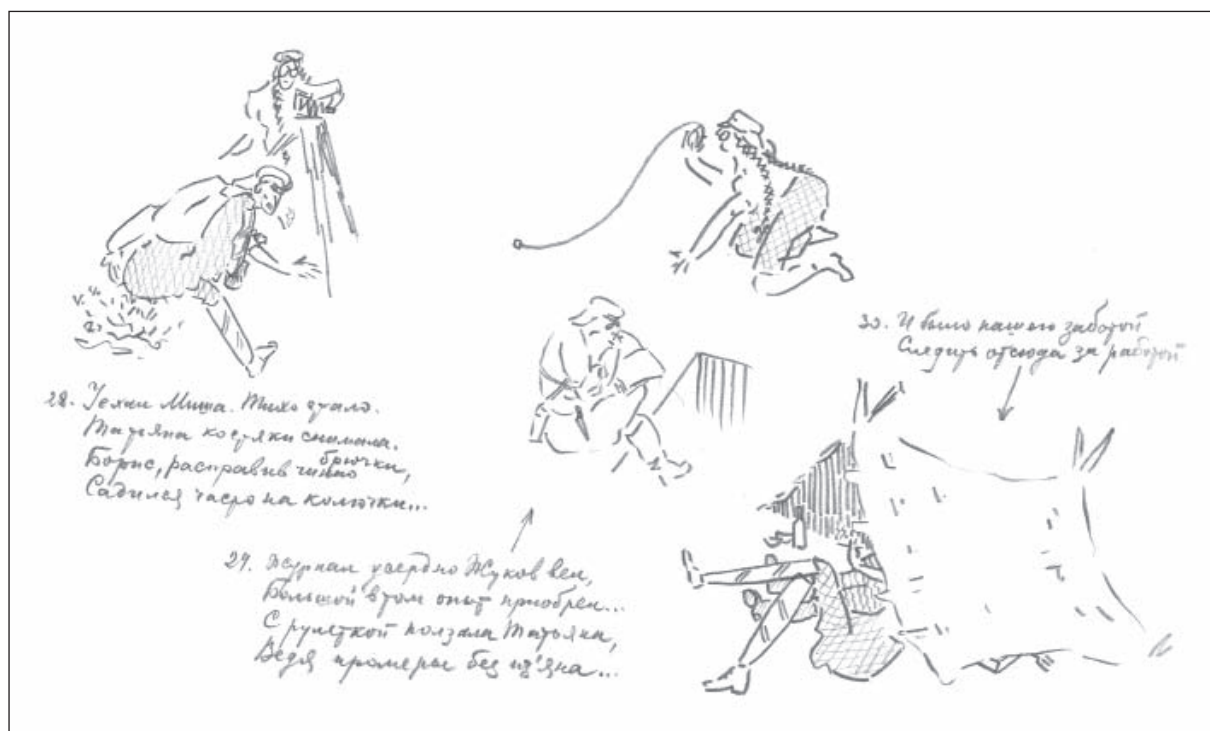 28. Уехал Миша. Тихо стало.
Татьяна костяки снимала.
Борис, расправив чинно брючки,
Садился часто на колючки...
29. Журнал усердно Жуков вел,
Большой в том опыт приобрел...
С рулеткой ползала Татьяна,
Ведя промеры без из'яна...
30. И было нашею заботой
Следить отсюда за работой